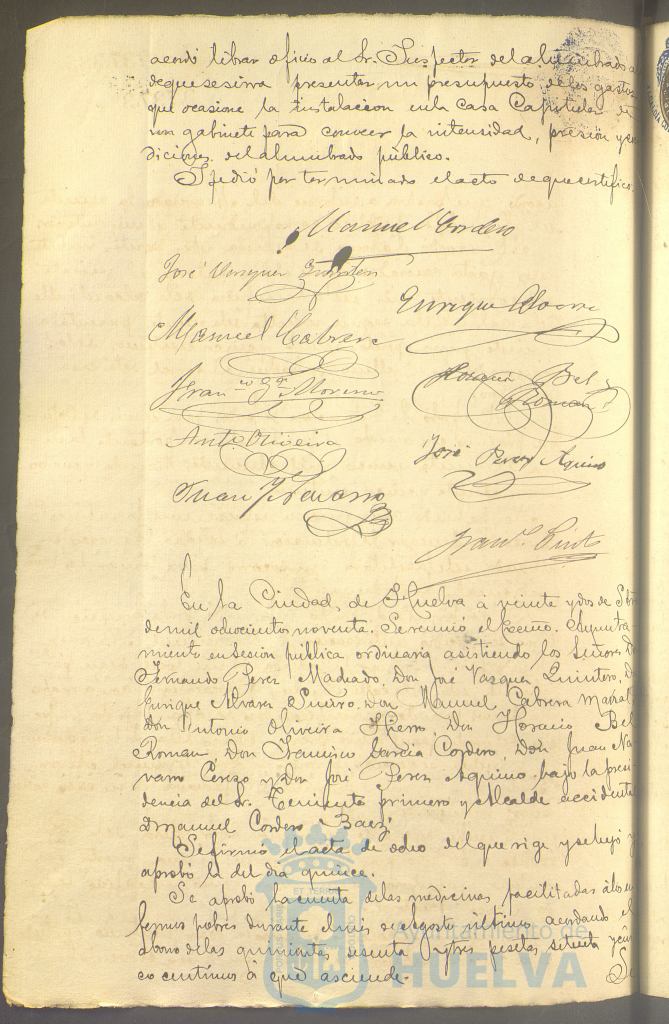 acordó librar oficio al Sr. Inspector del alumbrado a
de que se sirva presentar un presupuesto de los gastos
que ocasione la instalacion en la Casa Capitular de
un gabinete para conocer la intensidad, presión y con
diciones del alumbrado público.
Y se dió por terminado el acto de que certifico.
Manuel Cordero
José Vazquez Quintero
Enrique Alvarez
Manuel Cabrera
Horacio Bel
Roman
Franco Ga Moreno
Anto Oliveira
José Perez Aquino
Juan Navarro
Franco
En la Ciudad de Huelva á veinte y dos de Sbre
de mil ochocientos noventa. Se reunió el Excmo. Ayunta-
miento en sesión pública ordinaria asistiendo los Señores Dn
Fernando Perez Machado, Don José Vazquez Quintero, D
Enrique Alvarez Sueiro, Don Manuel Cabrera
Don Antonio Oliveira Hierro, Don Horacio Bel
Roman, Don Francisco Garcia Cordero, Don Juan Na
varro Cerezo y Don José Perez Aquino bajo la presi
dencia del Sr. Teniente primero y Alcalde accidental
D. Manuel Cordero Baez.
Se firmó el acta de ocho del que rige y se leyó y
aprobó la del dia quince.
Se aprobó la cuenta de las medicinas facilitadas á los en
fermos pobres durante el mes de Agosto último, acordando el
abono de las quinientas sesenta y tres pesetas setenta y cin
co centimos á que asciende.
Se
Ayuntamiento de
HUELVA